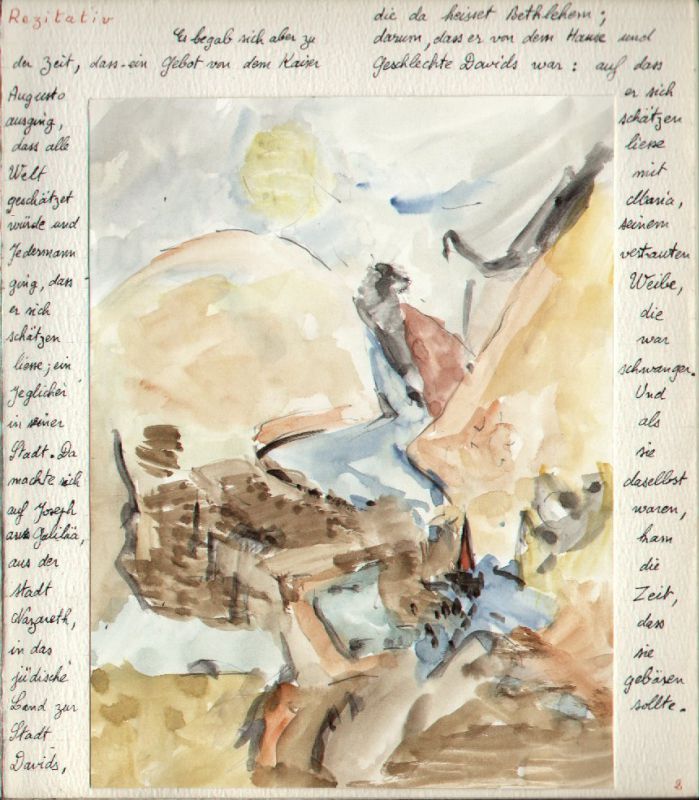 Rezitativ
Es begab sich aber zu
der Zeit, dass ein Gebot von dem Kaiser
Augusto
ausging,
dass alle
Welt
geschätzet
würde und
Jedermann
ging, dass
er sich
schätzen
liesse; ein
Jeglicher
in seiner
Stadt. Da
machte sich
auf Joseph
aus Galiläa,
aus der
Stadt
Nazareth,
in das
jüdische
Land zur
Stadt
Davids,
die da heisset Bethlehem;
darum, dass er von dem Hause und
Geschlechte Davids war: auf dass
er sich
schätzen
liesse
mit
Maria,
seinem
vertrauten
Weibe,
die
war
schwanger.
Und
als
sie
daselbst
waren,
kam
die
Zeit,
dass
sie
gebären
sollte.
2